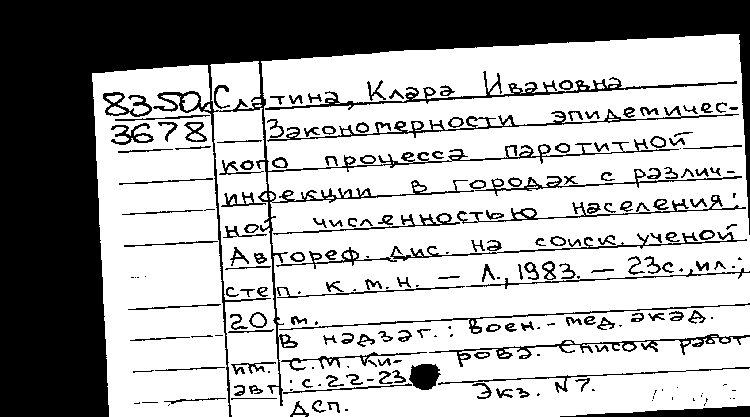 83-50к Слатина, Клара Ивановна
3678 Закономерности эпидемичес-
кого процесса паротитной
инфекции в городах с различ-
ной численностью населения:
Автореф. дис. на соиск. ученой
степ. к.м.н. — Л., 1983. — 23с., ил.;
20см.
В надзаг.: Воен.-мед. акад.
им. С.М. Ки- рова. Список работ
авт.: с.22-23
ДСП. Экз. N7.